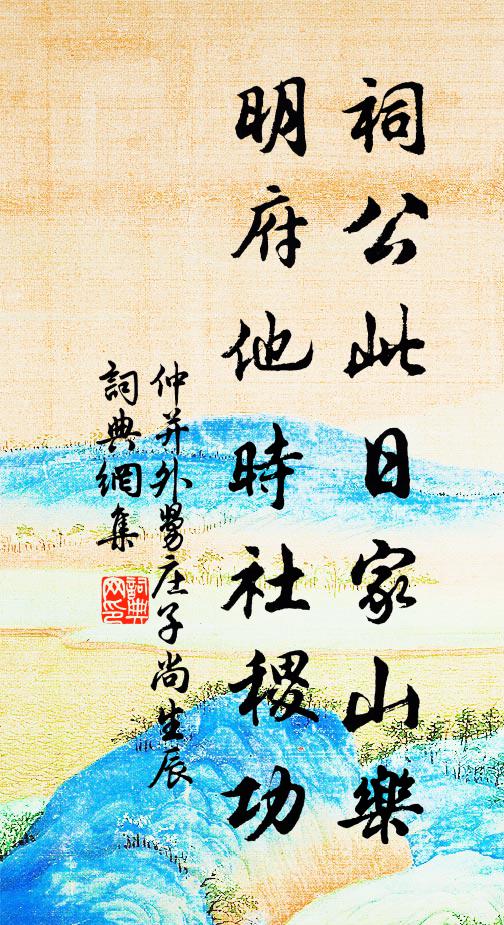 祠公此日家山樂
明府他時社稷功
仲并外舅庄子尚生辰
詞典網集
詞典